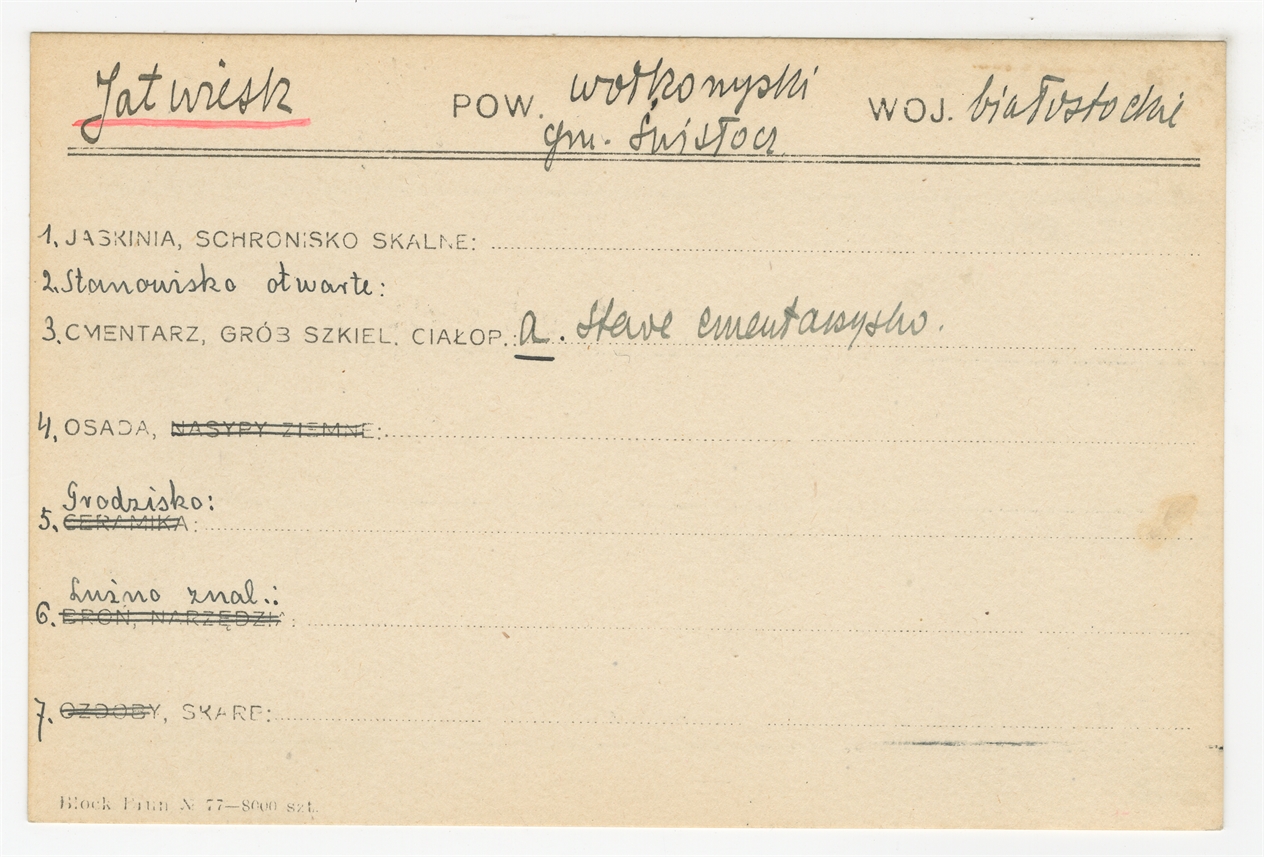 Jatwiesk POW. wołkowyski WOJ. białostockie
gm. Świsłocz
1. JASKINIA, SCHRONISKO SKALNE:
2. Stanowisko otwarte:
3. CMENTARZ, GRÓB SZKIEL. CIAŁOP.: a. stare cmentarzysko.
4. OSADA, NASYPY ZIEMNE:
Grodzisko:
5. CERAMIKA:
Luźno znal.:
6. BROŃ, NARZĘDZIA:
7. OZDOBY, SKARB:
Block Brun № 77—8000 szt.